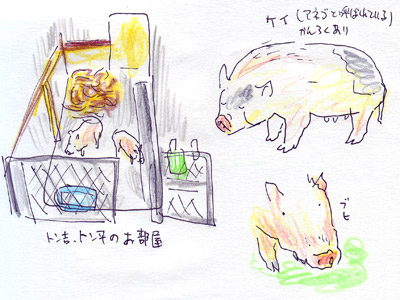 ケイ(アネゴと呼ばれている)
かんろくあり
ブヒ
トン吉、トン平のお部屋